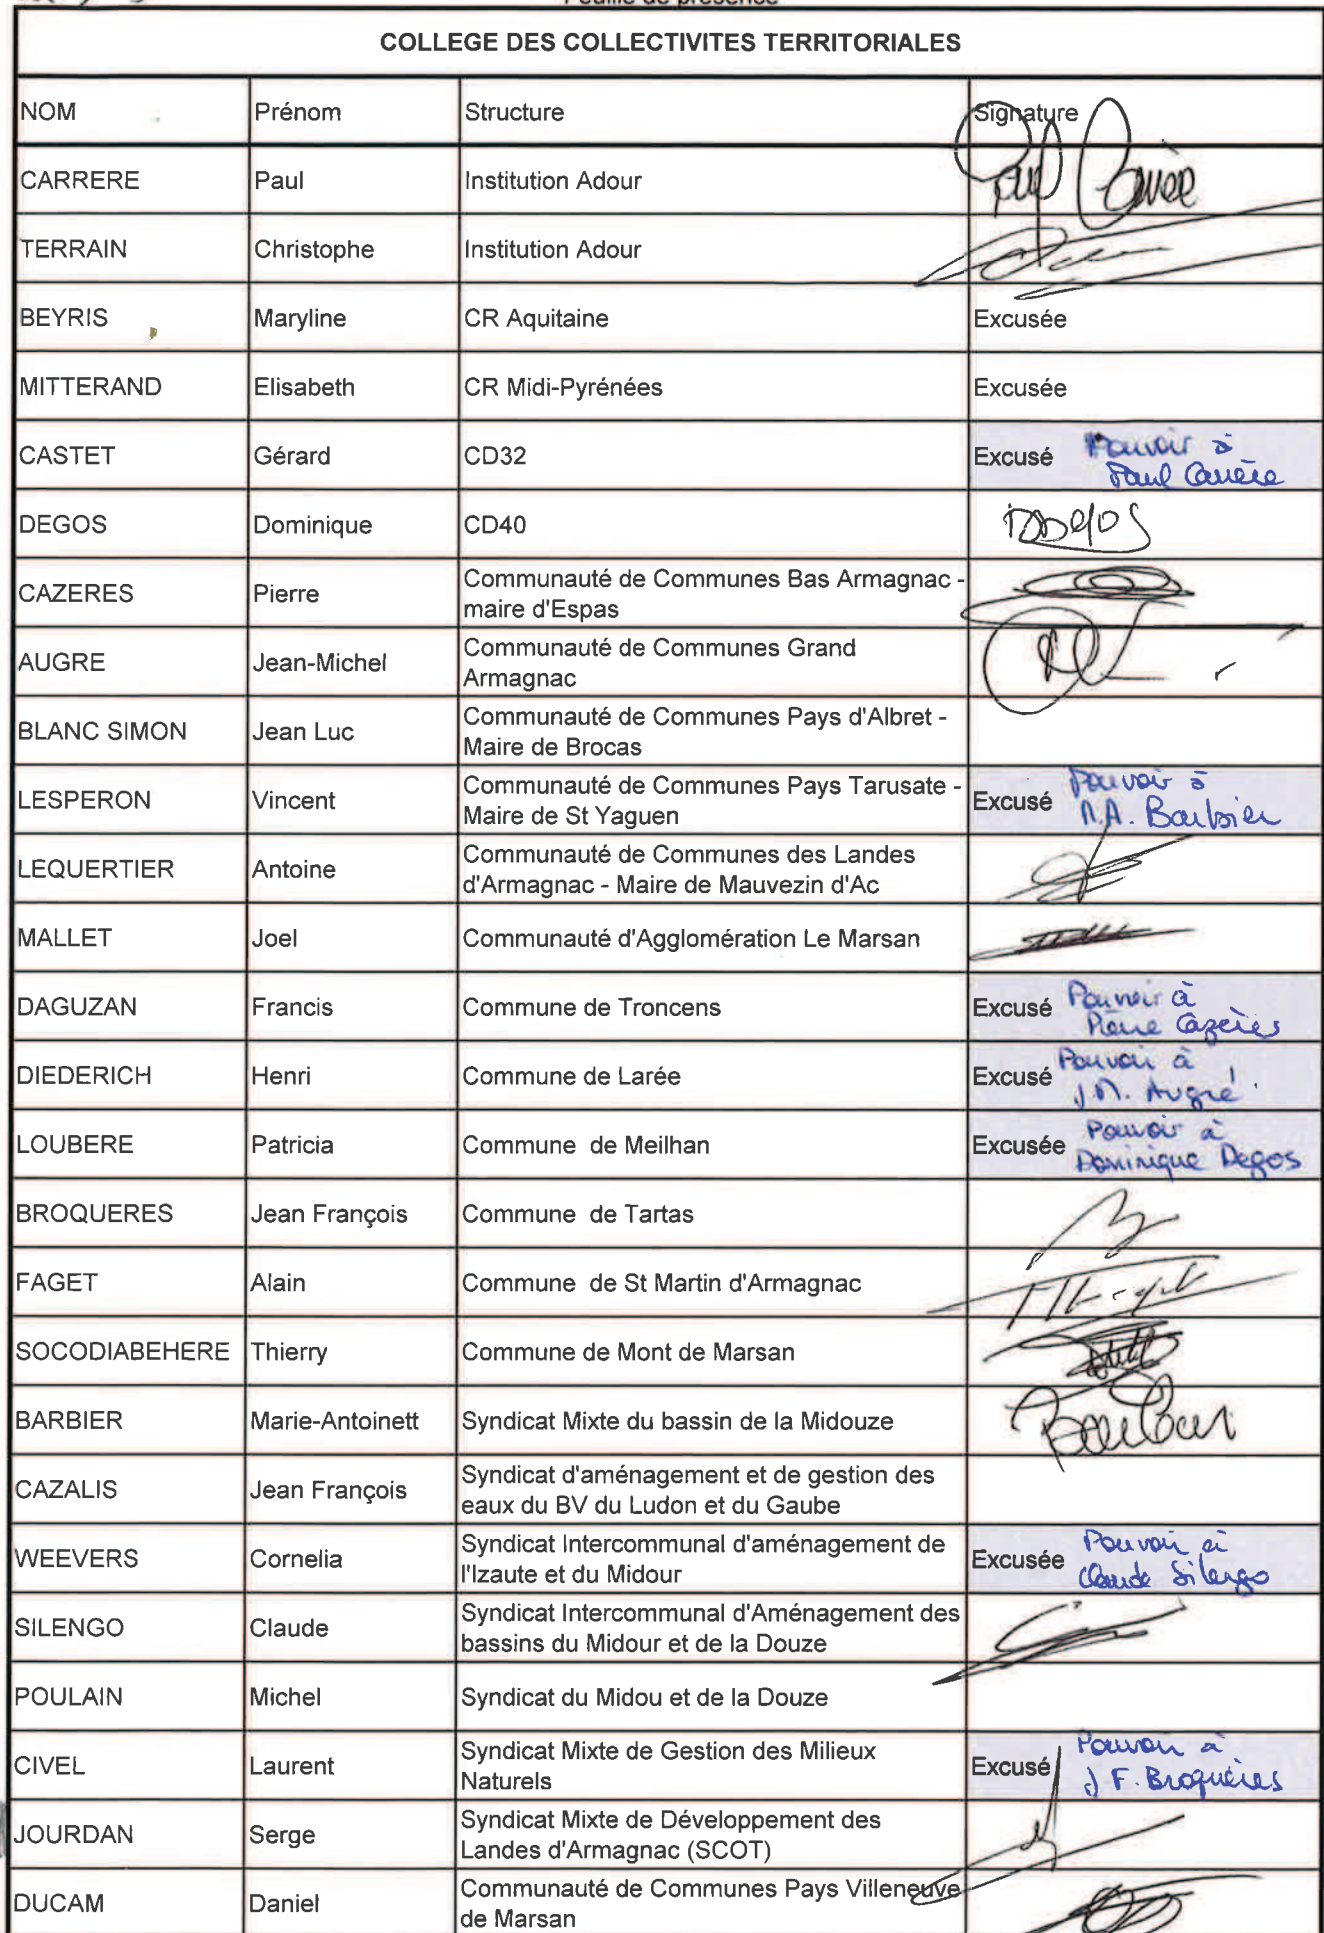 Feuille de présence
COLLEGE DES COLLECTIVITES TERRITORIALES
NOM Prénom Structure Signature
CARRERE Paul Institution Adour Paul Carrère
TERRAIN Christophe Institution Adour
BEYRIS Maryline CR Aquitaine Excusée
MITTERAND Elisabeth CR Midi-Pyrénées Excusée
CASTET Gérard CD32 Excusé Pouvoir à
Paul Carrère
DEGOS Dominique CD40 DDEGOS
CAZERES Pierre Communauté de Communes Bas Armagnac -
maire d'Espas
AUGRE Jean-Michel Communauté de Communes Grand
Armagnac
BLANC SIMON Jean Luc Communauté de Communes Pays d'Albret -
Maire de Brocas
LESPERON Vincent Communauté de Communes Pays Tarusate -
Maire de St Yaguen Excusé Pouvoir à
M.A. Barbier
LEQUERTIER Antoine Communauté de Communes des Landes
d'Armagnac - Maire de Mauvezin d'Ac
MALLET Joel Communauté d'Agglomération Le Marsan
DAGUZAN Francis Commune de Troncens Excusé Pouvoir à
Pierre Cazères
DIEDERICH Henri Commune de Larée Excusé Pouvoir à
J.M. Augré
LOUBERE Patricia Commune de Meilhan Excusée Pouvoir à
Dominique Degos
BROQUERES Jean François Commune de Tartas
FAGET Alain Commune de St Martin d'Armagnac
SOCODIABEHERE Thierry Commune de Mont de Marsan
BARBIER Marie-Antoinett Syndicat Mixte du bassin de la Midouze
CAZALIS Jean François Syndicat d'aménagement et de gestion des
eaux du BV du Ludon et du Gaube
WEEVERS Cornelia Syndicat Intercommunal d'aménagement de
l'Izaute et du Midour Excusée Pouvoir à
Claude Silengo
SILENGO Claude Syndicat Intercommunal d'Aménagement des
bassins du Midour et de la Douze
POULAIN Michel Syndicat du Midou et de la Douze
CIVEL Laurent Syndicat Mixte de Gestion des Milieux
Naturels Excusé Pouvoir à
J F. Broquères
JOURDAN Serge Syndicat Mixte de Développement des
Landes d'Armagnac (SCOT)
DUCAM Daniel Communauté de Communes Pays Villeneuve
de Marsan